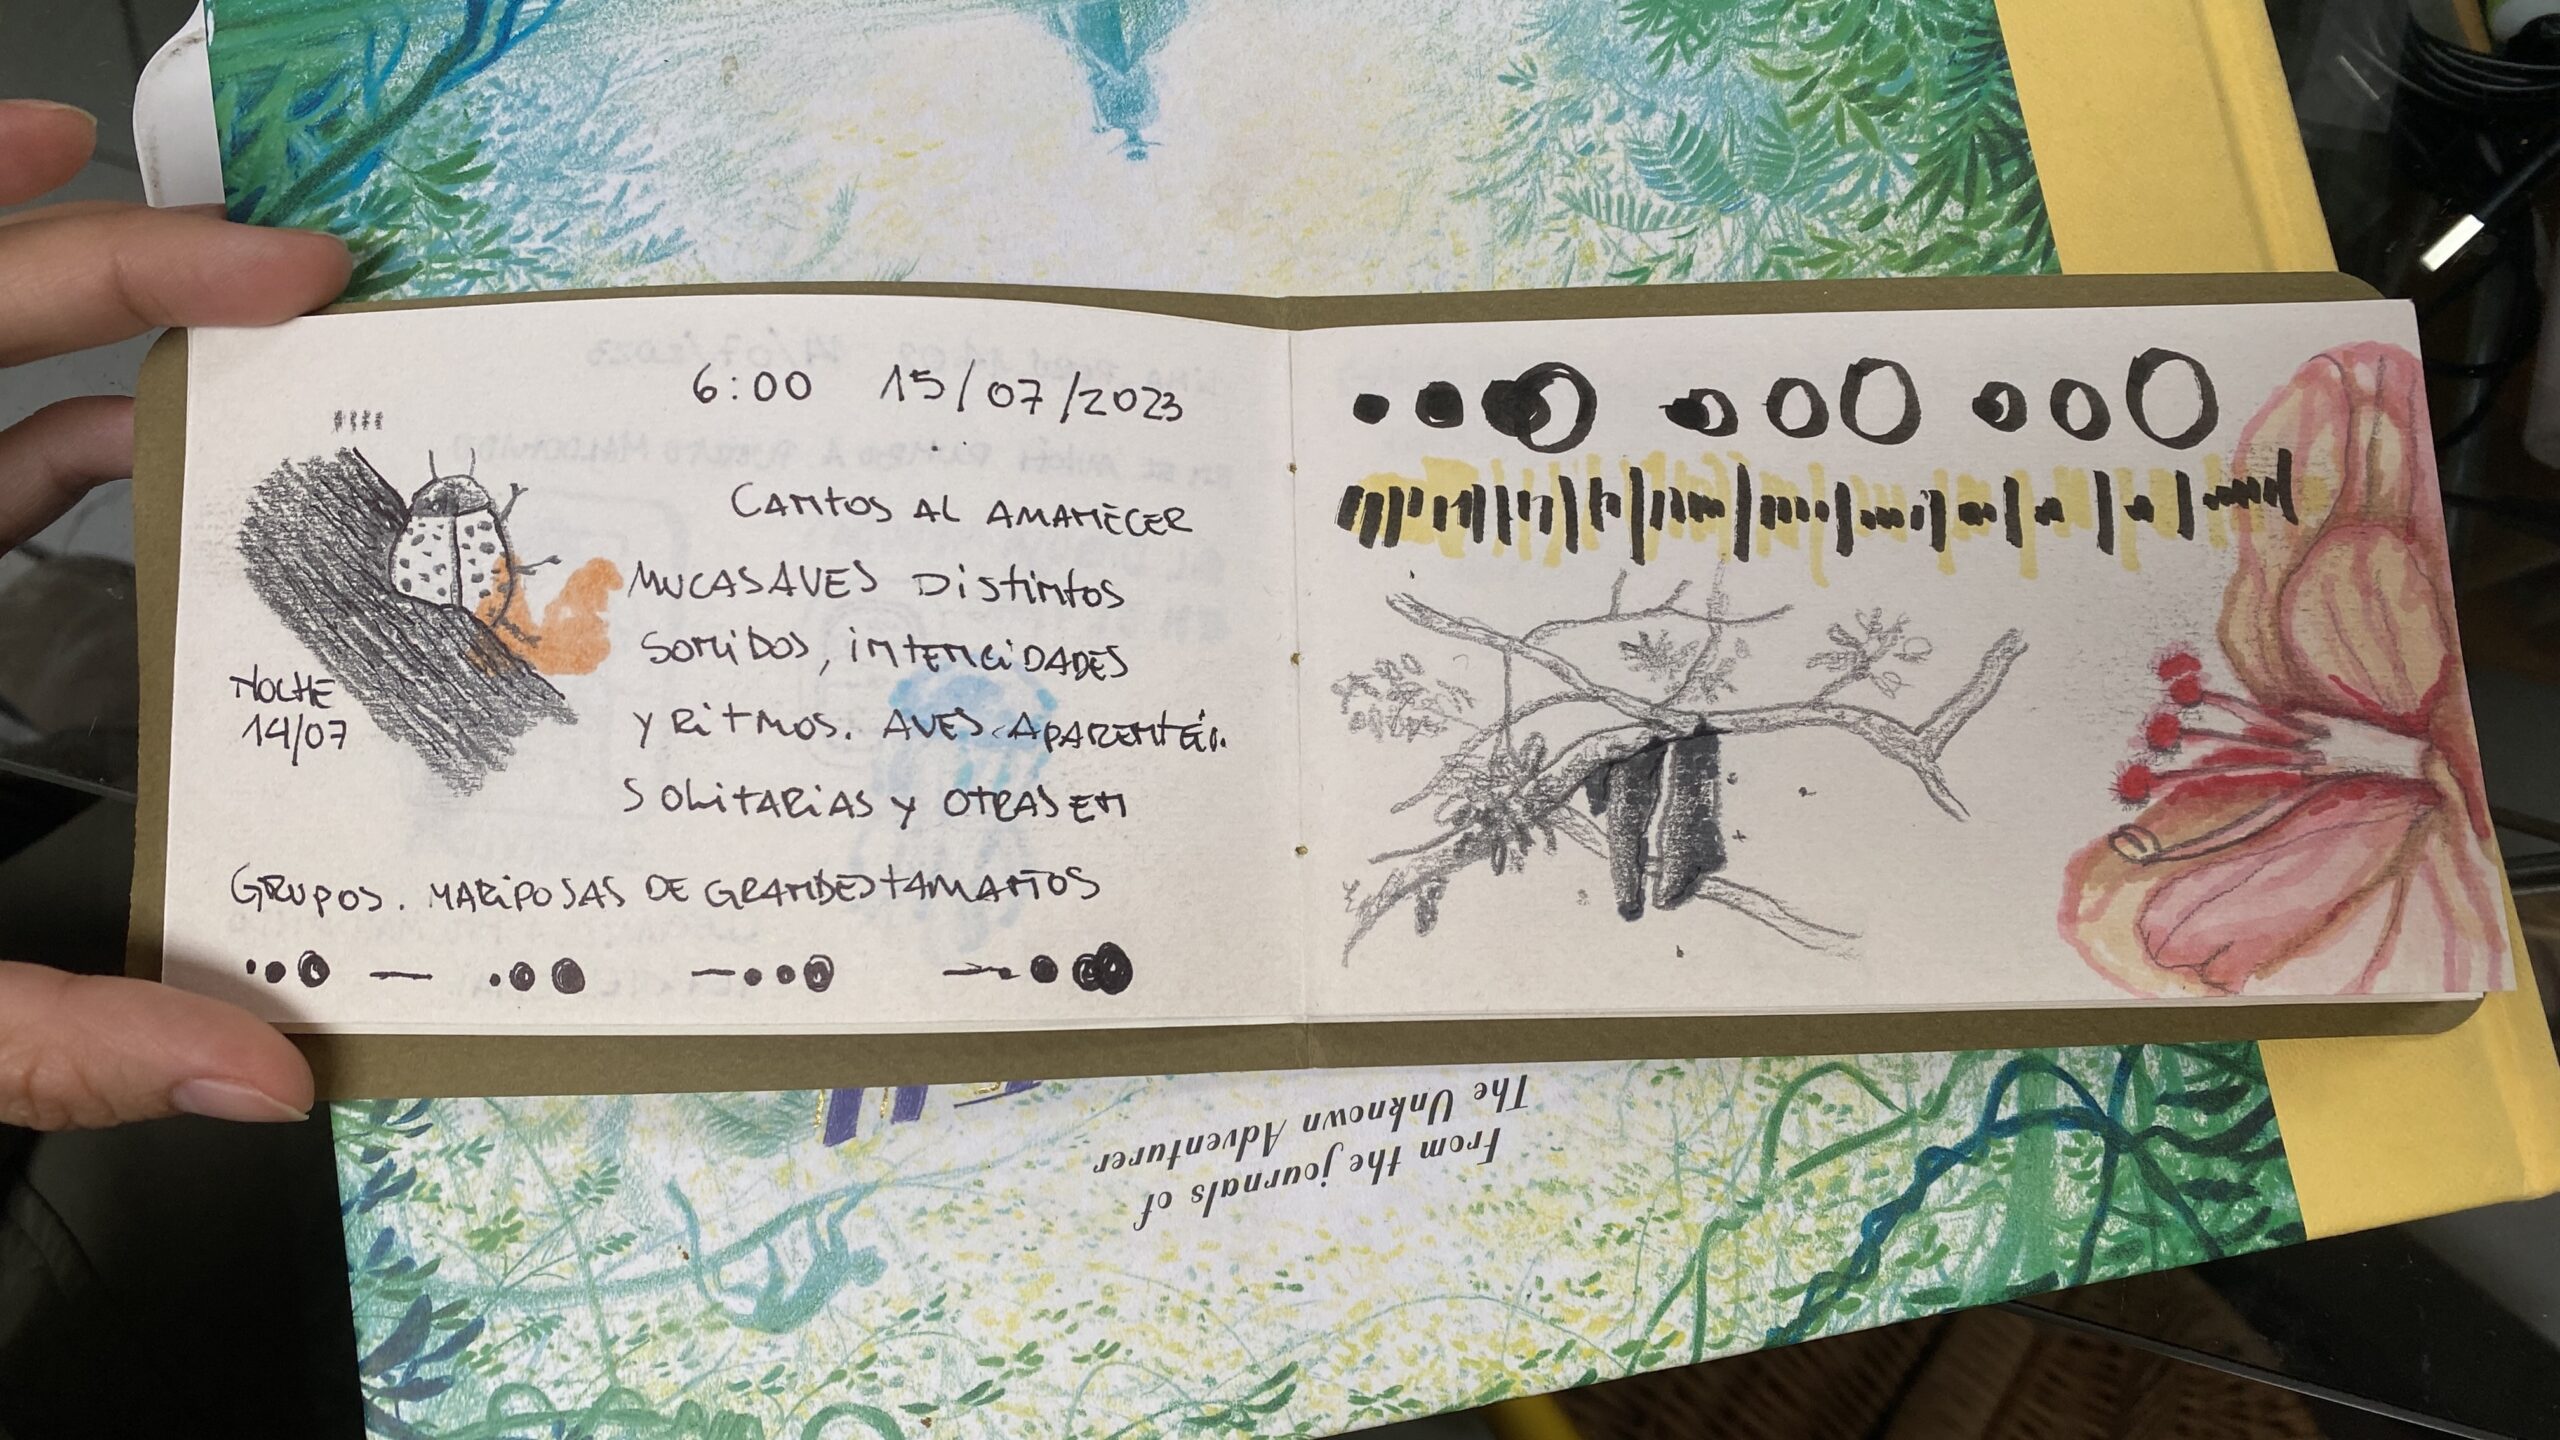 6:00 15/07/2023
CANTOS AL AMANECER
MUCASAVES DiStiNtOS
SONiDOS, iNTENCiDADES
Y RitMOS. AVES APARENTE
SOLitARiAS Y OTRAS EN
GRUPOS. MARiPOSAS DE GRANDES TAMAÑOS
NOCHE
14/07
From the journals of
The Unknown Adventurer